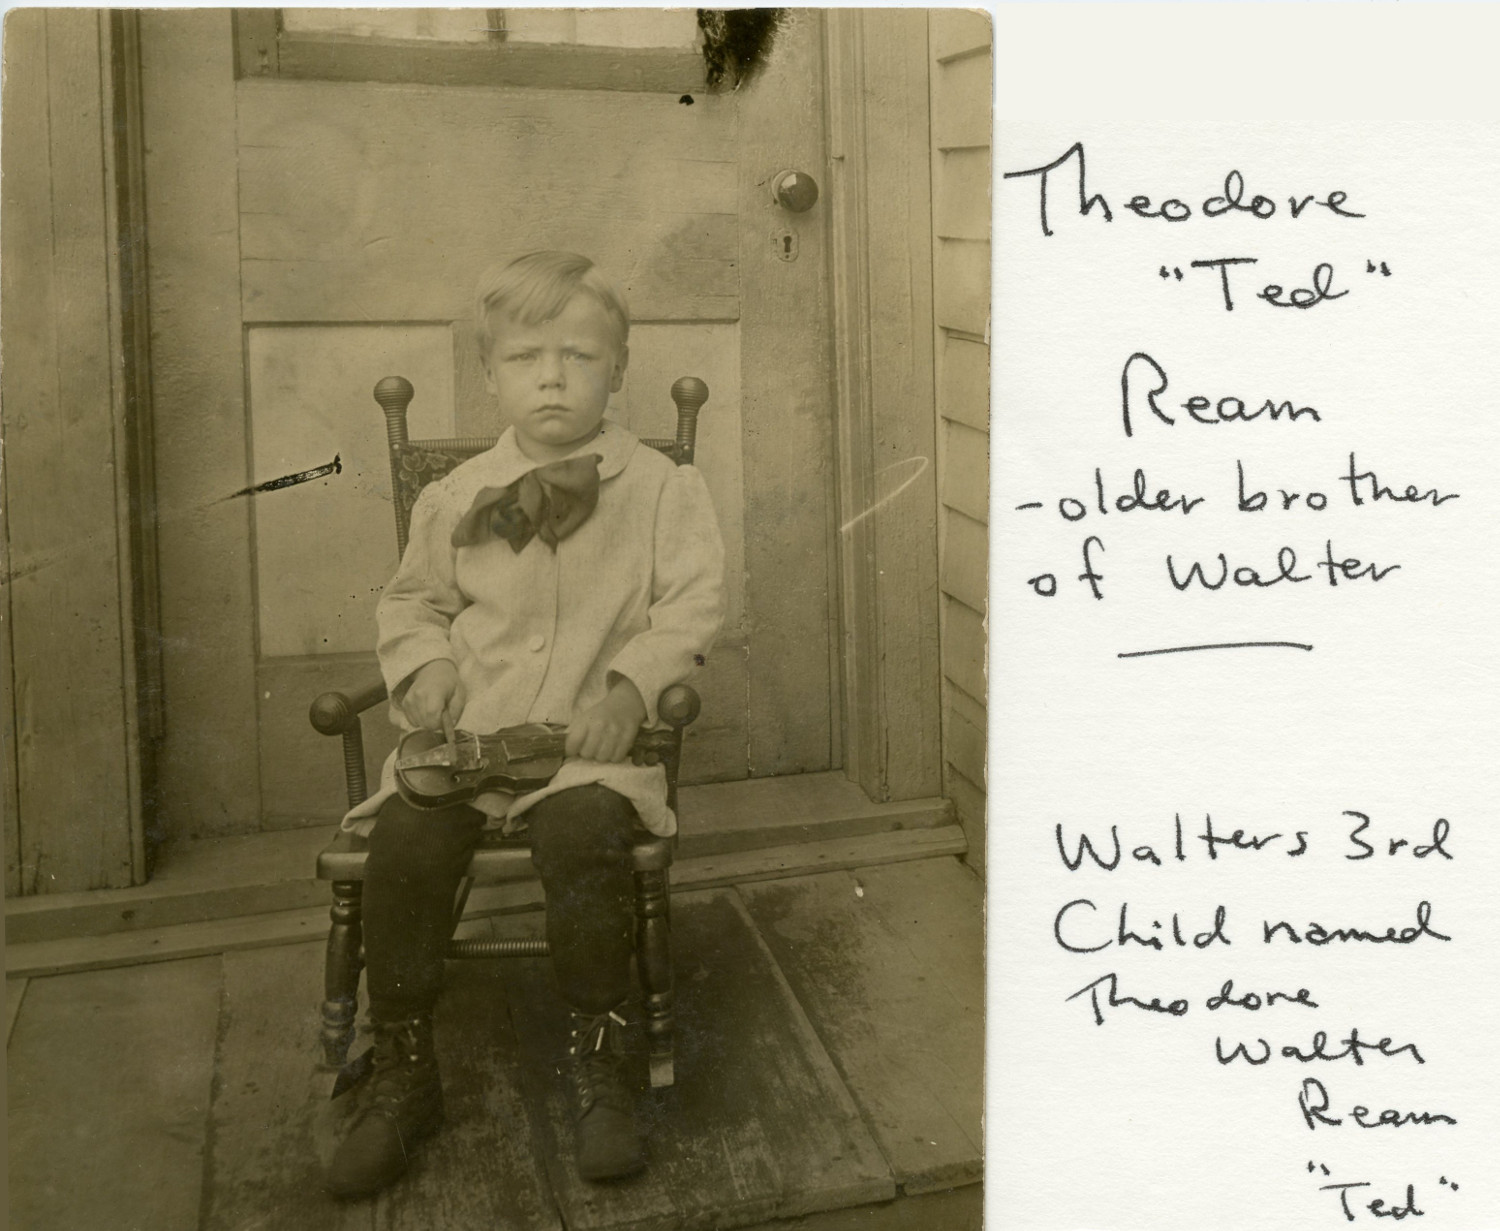 Theodore
"Ted"
Ream
-older brother
of Walter
Walters 3rd
Child named
Theodore
Walter
Ream
"Ted"